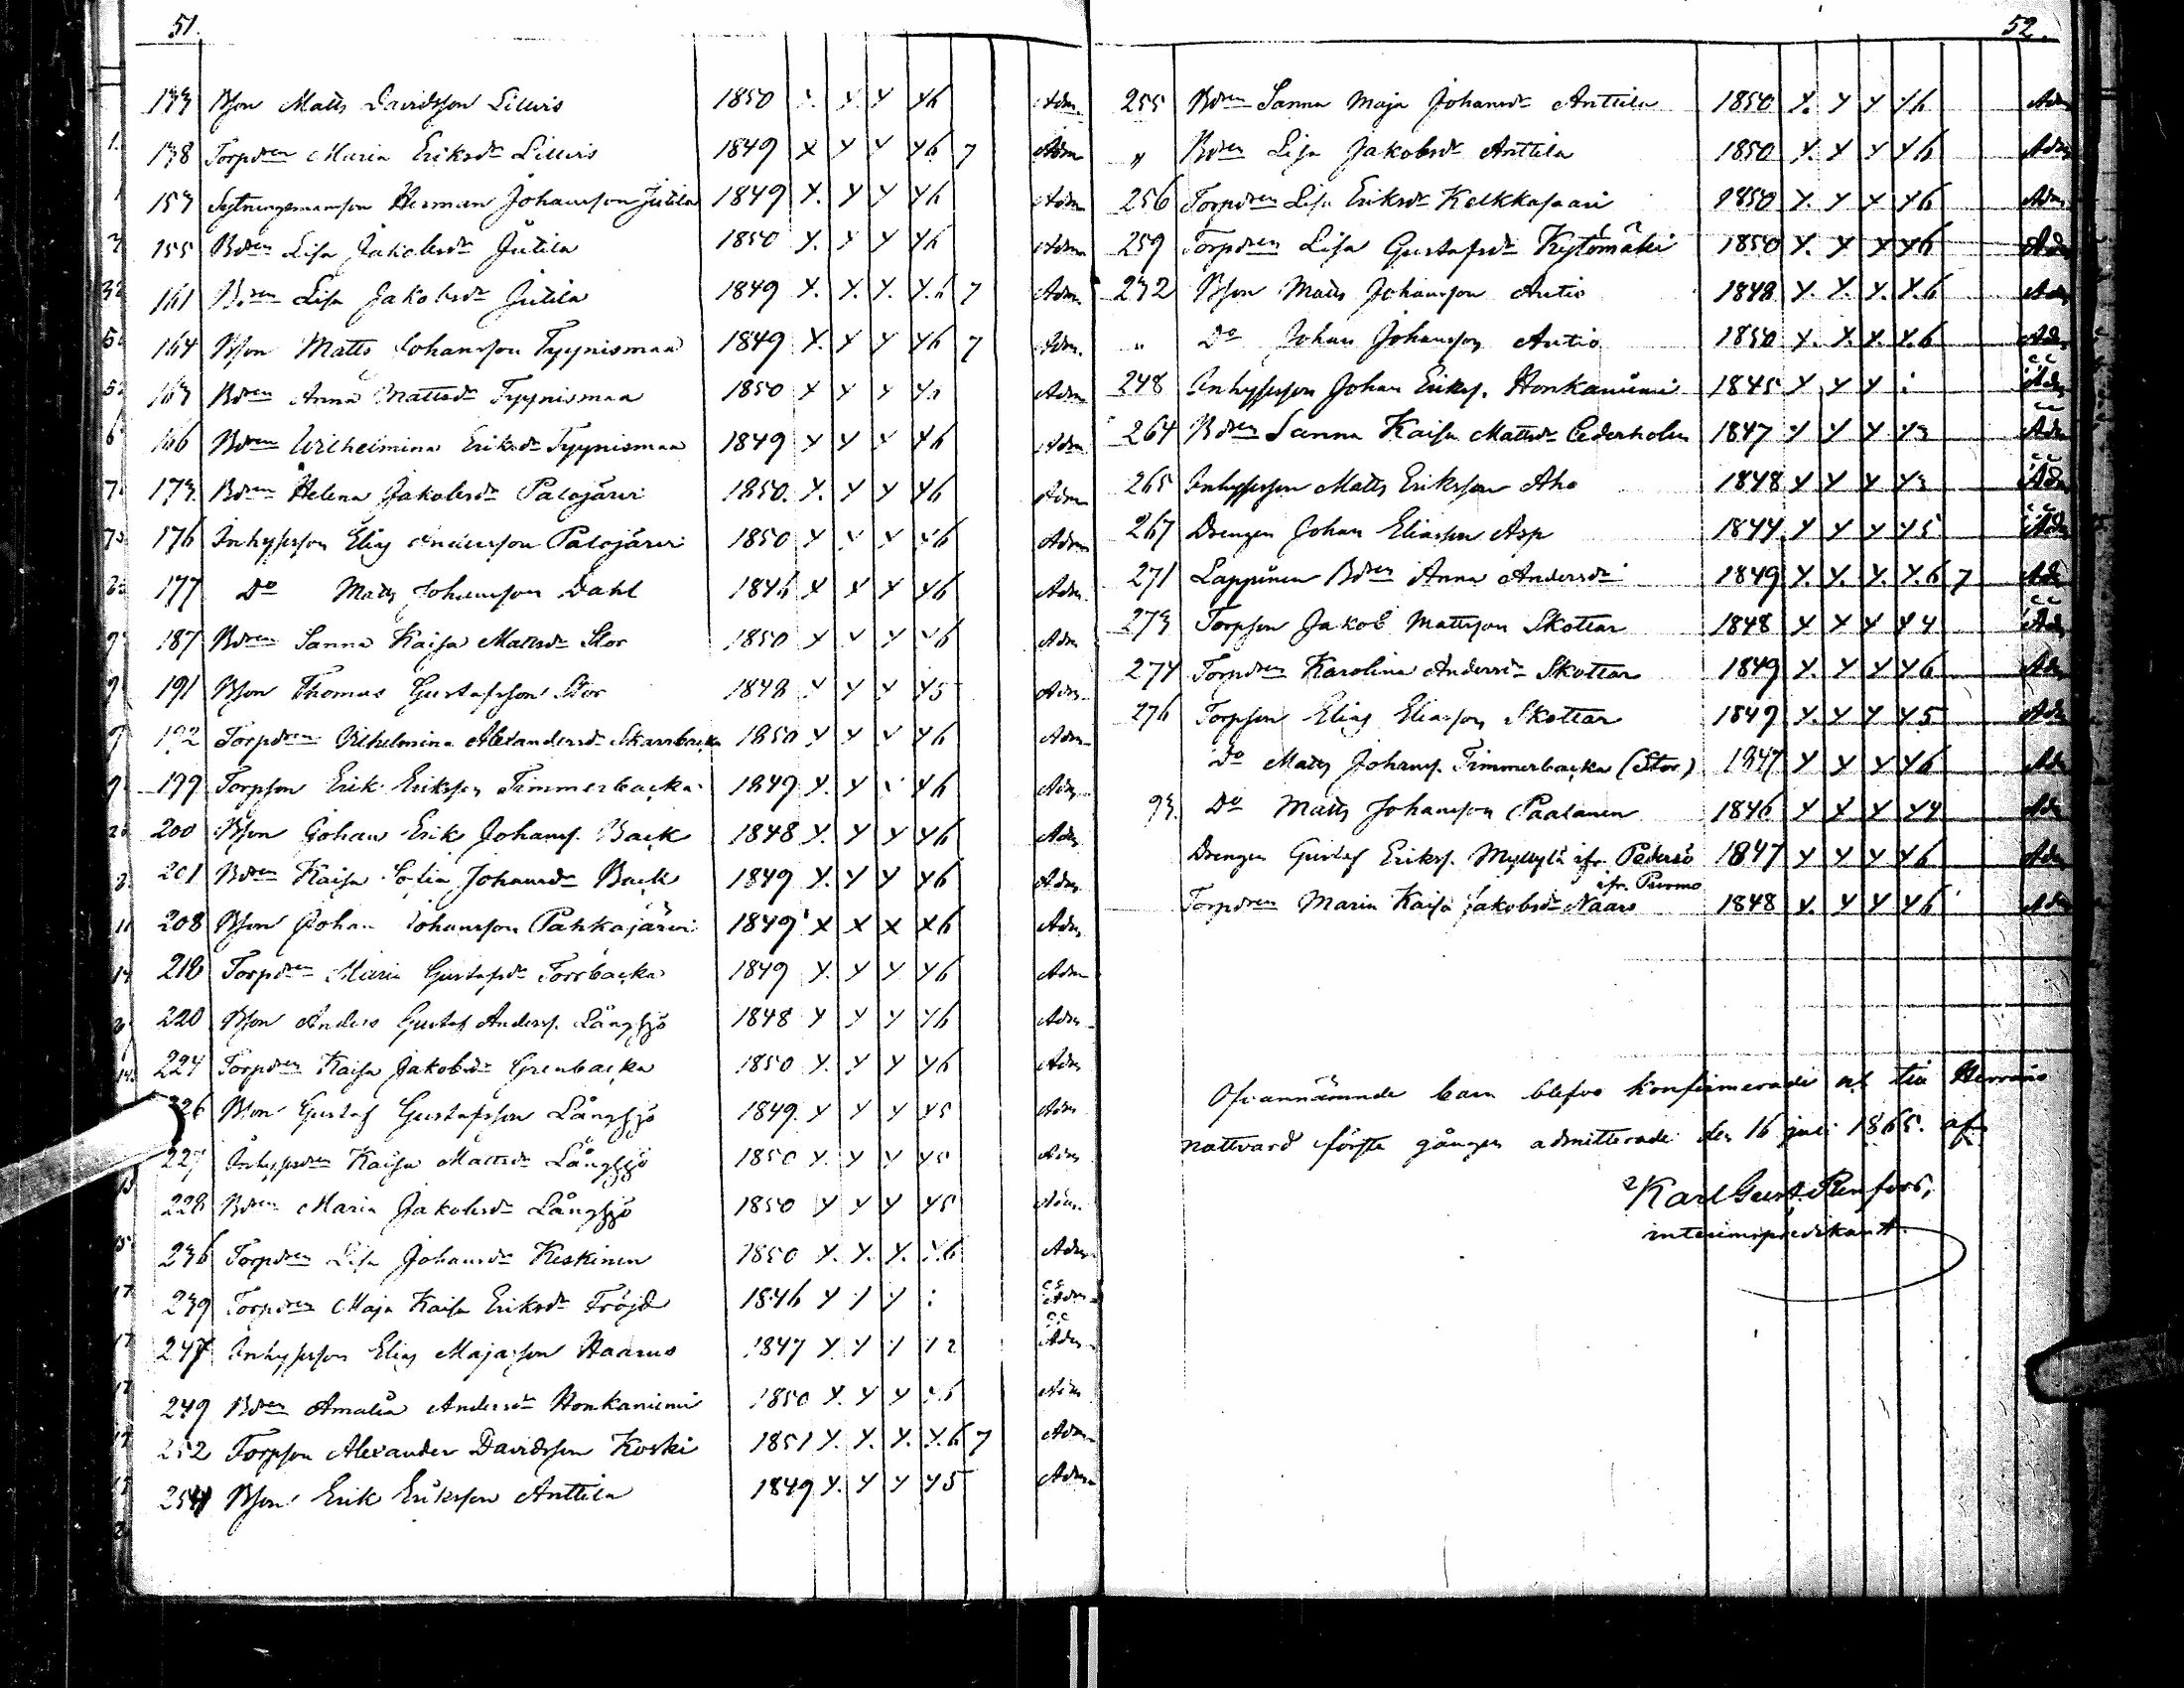 51.
133 Bson Matts Davidsson Lillvis 1850 Y. Y. Y Y 6 Adm
138 Torpdren Maria Eriksdr Lillvis 1849 X Y Y Y 6 7 Adm
153 Sytningsmanson Herman Johansson Jutila 1849 Y. Y Y Y 6 Adm
155 Bdren Lisa Jakobsdr Jutila 1850 Y. Y Y Y 6 Adm
161 Bdren Lisa Jakobsdr Jutila 1849 Y. Y. Y. Y. 6 7 Adm
164 Bson Matts Johansson Tyynismaa 1849 Y. Y Y Y 6 7 Adm.
163 Bdren Anna Mattsdr Tyynismaa 1850 Y Y Y Y Adm
166 Bdren Wilhelmina Eriksdr Tyynismaa 1849 Y Y Y Y 6 Adm
173 Bdren Helena Jakobsdr Palojärvi 1850. Y. Y Y Y 6 Adm
176 Inhysesson Elias Andersson Palojärvi 1850 Y Y Y Y 6 Adm
177 Do Matts Johansson Dahl 1846 Y Y Y Y 6 Adm.
187 Bdren Sanna Kaisa Mattsdr Stor 1850 Y Y Y Y 6 Adm
191 Bson Thomas Gustafsson Stor 1848 Y Y Y Y 5 Adm
192 Torpdren Vilhelmina Alexandersdr Skarsbacka 1850 Y Y Y Y 6 Adm
199 Torpson Erik Eriksson Timmerbacka 1849 Y. Y Y Y 6 Adm
200 Bson Johan Erik Johanss. Back 1848 Y. Y Y Y 6 Adm
201 Bdren Kaisa Sofia Johansdr Back 1849 Y. Y Y Y 6 Adm
208 Bson Johan Johansson Pahkajärvi 1849 X X X X 6 Adm
218 Torpdren Maria Gustafsdr Forsbacka 1849 Y. Y Y Y 6 Adm
220 Bson Anders Gustaf Anderss. Långsjö 1848 Y Y Y Y 6 Adm
224 Torpdren Kaisa Jakobsdr Grenbacka 1850 Y. Y Y Y 6 Adm
226 Bson Gustaf Gustafsson Långsjö 1849. Y Y Y Y 5 Adm
227 Inhysesdren Kaisa Mattsdr Långsjö 1850 Y. Y Y Y 5 Adm
228 Bdren Maria Jakobsdr Långsjö 1850 Y Y Y Y 5 Adm.
236 Torpdren Lisa Johansdr Keskinen 1850 Y. Y. Y. Y. 6 Adm
239 Torpdren Maja Kaisa Eriksdr Fröjd 1846 Y Y Y Adm
247 Inhysesson Elias Majasson Haarus 1847 Y. Y Y Y 2 Adm
249 Bdren Amalia Andersdr Honkaniemi 1850 Y. Y Y Y. 6 Adm
252 Torpson Alexander Davidsson Koski 1851 Y. Y. Y. Y. 6 7 Adm
254 Bson Erik Eriksson Anttila 1849 Y. Y Y Y 5 Adm
52.
255 Bdren Sanna Maja Johansdr Anttila 1850 Y. Y Y Y 6 Adm
„ Bdren Lisa Jakobsdr Anttila 1850 Y. Y Y Y 6 Adm
256 Torpdren Lisa Eriksdr Kelkkasaari 1850 Y. Y Y Y 6 Adm
259 Torpdren Lisa Gustafsdr Kytömäki 1850 Y. Y Y Y 6 Adm
232 Bson Matts Johansson Autio 1848 Y. Y. Y. Y. 6 Adm
„ Do Johan Johansson Autio 1850 Y. Y. Y. Y. 6 Adm
248 Inhysesson Johan Erikss. Honkaniemi 1845 Y Y Y Adm
264 Bdren Sanna Kaisa Mattsdr Cederholm 1847 Y Y Y Y 3 Adm
265 Inhysesson Matts Eriksson Aho 1848 Y Y Y Y 3 Adm
267 Drengen Johan Eliasson Asp 1844 Y Y Y Y 5 Adm
271 Lappinen Bdren Anna Andersdr 1849 Y. Y. Y. Y. 6 7 Adm
273 Torpson Jakob Mattsson Skottar 1848 Y. Y Y Y 4 Adm
274 Torpdren Karolina Andersdr Skottar 1849 Y. Y Y Y 6 Adm
276 Torpson Elias Eliasson Skottar 1849 Y. Y Y Y 5 Adm
Do Matts Johanss. Timmerbacka (Stor) 1847 Y Y Y Y 6 Adm
93. Do Matts Johansson Paalanen 1846 Y Y Y Y 4 Adm
Drengen Gustaf Erikss. Myllylä ifr. Pedersö 1847 Y Y Y Y 6 Adm
ifr. Purmo
Torpdren Maria Kaisa Jakobsdr Näars 1848 Y. Y Y Y 6 Adm
Ofvannämnde barn blefvo konfirmerade och till Herrans
nattvard första gången admitterade den 16 juli 1865. af
Karl Gust. Renfors,
interimspredikant.